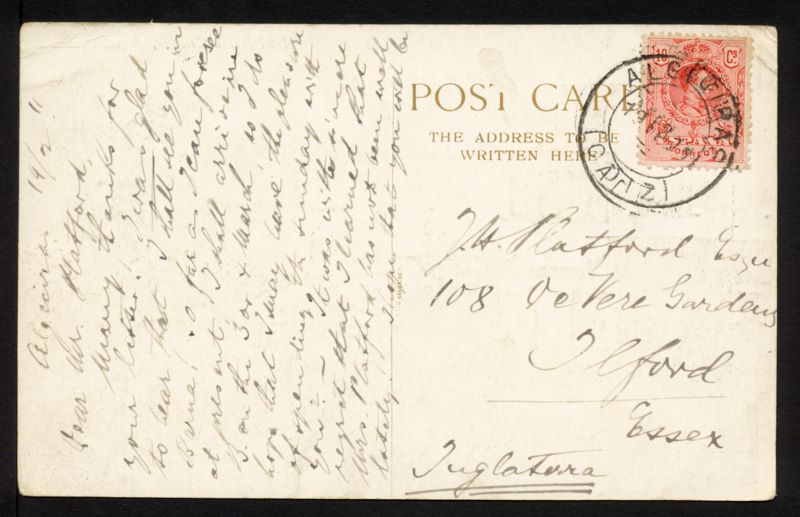 Algeciras 19/2 11
Dear Mr. Platford,
Many thanks for
your letter. I was glad
to hear that I shall see you in
Barna. So far as I can foresee
at present I shall arrive in
B. on the 3 or 4 March so I do
hope that I may have the pleasure
of spending the Sunday with
you. It was with sincere
regret that I learned that
Mrs. Platford has not been well
lately. I hope that you will be
POST CARD
THE ADDRESS TO BE
WRITTEN HERE
10 Cs
ALGECIRAS
(CADIZ)
J. H. Platford Esqu
108 De Vere Gardens
Ilford
Essex
Inglaterra